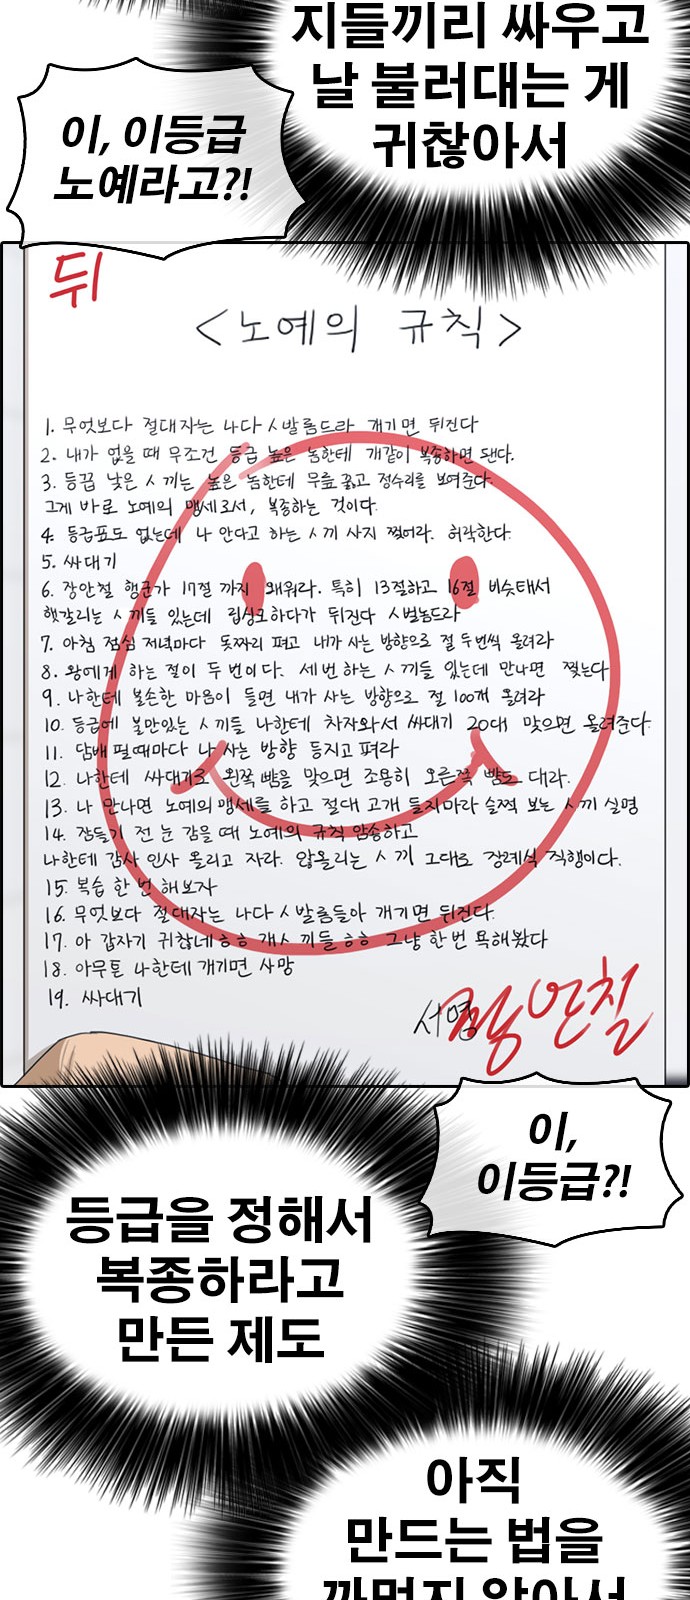 지들끼리 싸우고
날 불러대는 게
귀찮아서
이, 이등급
노예라고?!
뒤
<노예의 규칙>
1. 무엇보다 절대자는 나다 ㅅ발롬드라 개기면 뒤진다
2. 내가 없을 때 무조건 등급 높은 놈한테 개같이 복종하면 됀다.
3. 등끕 낮은 ㅅ끼는 높은 놈한테 무릎 꿇고 정수리를 보여준다.
그게 바로 노예의 맹세로서, 복종하는 것이다.
4. 등급표도 없는데 나 안다고 하는 ㅅ끼 사지 찢어라. 허락한다.
5. 싸대기
6. 장안철 행군가 17절 까지 왜워라. 특히 13절하고 16절 비슷태서
햇갈리는 ㅅ끼들 있는데 립싱크하다가 뒤진다 ㅅ벌놈드라
7. 아침 점심 저녁마다 돗짜리 펴고 내가 사는 방향으로 절 두번씩 올려라
8. 왕에게 하는 절이 두 번이다. 세 번 하는 ㅅ끼들 있는데 만나면 찢는다
9. 나한테 불손한 마음이 들면 내가 사는 방향으로 절 100개 올려라
10. 등급에 불만있는 ㅅ끼들 나한테 차자와서 싸대기 20대 맞으면 올려준다.
11. 담배 필때마다 나 사는 방향 등지고 펴라
12. 나한테 싸대기로 왼쪽 뺨을 맞으면 조용히 오른쪽 뺨도 대라.
13. 나 만나면 노예의 맹세를 하고 절대 고개 들지마라 슬쩍 보는 ㅅ끼 실명
14. 잠들기 전 눈 감을 때 노예의 규칙 암송하고
나한테 감사 인사 올리고 자라. 않올리는 ㅅ끼 그대로 장례식 직행이다.
15. 복습 한 번 해보자
16. 무엇보다 절대자는 나다 ㅅ발롬들아 개기면 뒤진다.
17. 아 갑자기 귀찮네 ㅎㅎ 개ㅅ끼들 ㅎㅎ 그냥 한번 욕해봤다
18. 아무튼 나한테 개기면 사망
19. 싸대기
서명 장안철
이,
이등급?!
등급을 정해서
복종하라고
만든 제도
아직
만드는 법을
까먹지 않아서